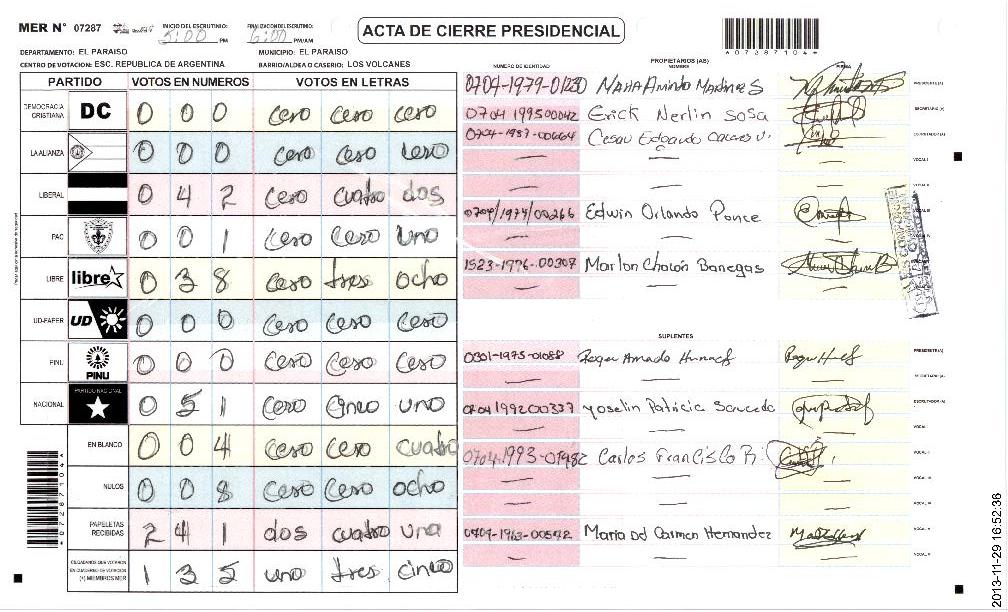 MER N° 07287 INICIO DEL ESCRUTINIO: 5:00 PM FINALIZACION DEL ESCRUTINIO: 6:00 PM/AM
ACTA DE CIERRE PRESIDENCIAL
*07287104*
DEPARTAMENTO: EL PARAISO MUNICIPIO: EL PARAISO
CENTRO DE VOTACION: ESC. REPUBLICA DE ARGENTINA BARRIO/ALDEA O CASERIO: LOS VOLCANES
PARTIDO VOTOS EN NUMEROS VOTOS EN LETRAS
DEMOCRACIA CRISTIANA DC 0 0 0 cero cero cero
LA ALIANZA 0 0 0 cero cero cero
LIBERAL 0 4 2 cero cuatro dos
PAC 0 0 1 cero cero uno
LIBRE libre 0 3 8 cero tres ocho
UD-FAPER UD 0 0 0 cero cero cero
PINU PINU 0 0 0 cero cero cero
NACIONAL PARTIDO NACIONAL 0 5 1 cero cinco uno
EN BLANCO 0 0 4 cero cero cuatro
NULOS 0 0 8 cero cero ocho
PAPELETAS RECIBIDAS 2 4 1 dos cuatro una
CIUDADANOS QUE VOTARON EN CUADERNO DE VOTACION (+) MIEMBROS MER 1 3 5 uno tres cinco
*07287104*
PROPIETARIOS (AS)
NUMERO DE IDENTIDAD NOMBRE FIRMA
0704-1979-01230 PRESIDENTE (A)
0704 1995 00042 Erick Nerlin Sosa SECRETARIO (A)
0704-1987-00664 Cesar Edgardo ESCRUTADOR (A)
— — — VOCAL I
— — — VOCAL II
0704/1974/00266 Edwin Orlando Ponce VOCAL III
— — — VOCAL IV
1523-1976-00307 Marlon Banegas
— — —
SUPLENTES
0301-1975-01088 Roger Amado PRESIDENTE (A)
— — — SECRETARIO (A)
0704 1992 00337 Yoselin Patricia ESCRUTADOR (A)
— — — VOCAL I
0704-1993-01982 Carlos Francisco R. VOCAL II
— — — VOCAL III
— — — VOCAL IV
0704-1963-00542 Maria Del Carmen Hernandez VOCAL V
— — — VOCAL VI
2013-11-29 16:52:36